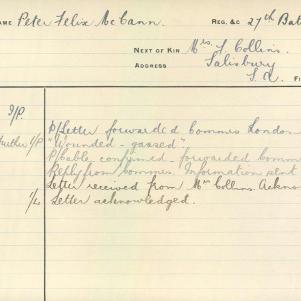 NAME Peter Felix McCann. REG. &C 27th Bat
NEXT OF KIN Mrs. F. Collins.
ADDRESS Salisbury
S.A.
I/P P/Letter forwarded Commes London
Further I/P "Wounded - gassed"
P/Cable confirmed - forwarded Comm
Reply from Commes. Information sent
Letter received from Mrs Collins. Ackno
Letter acknowledged.